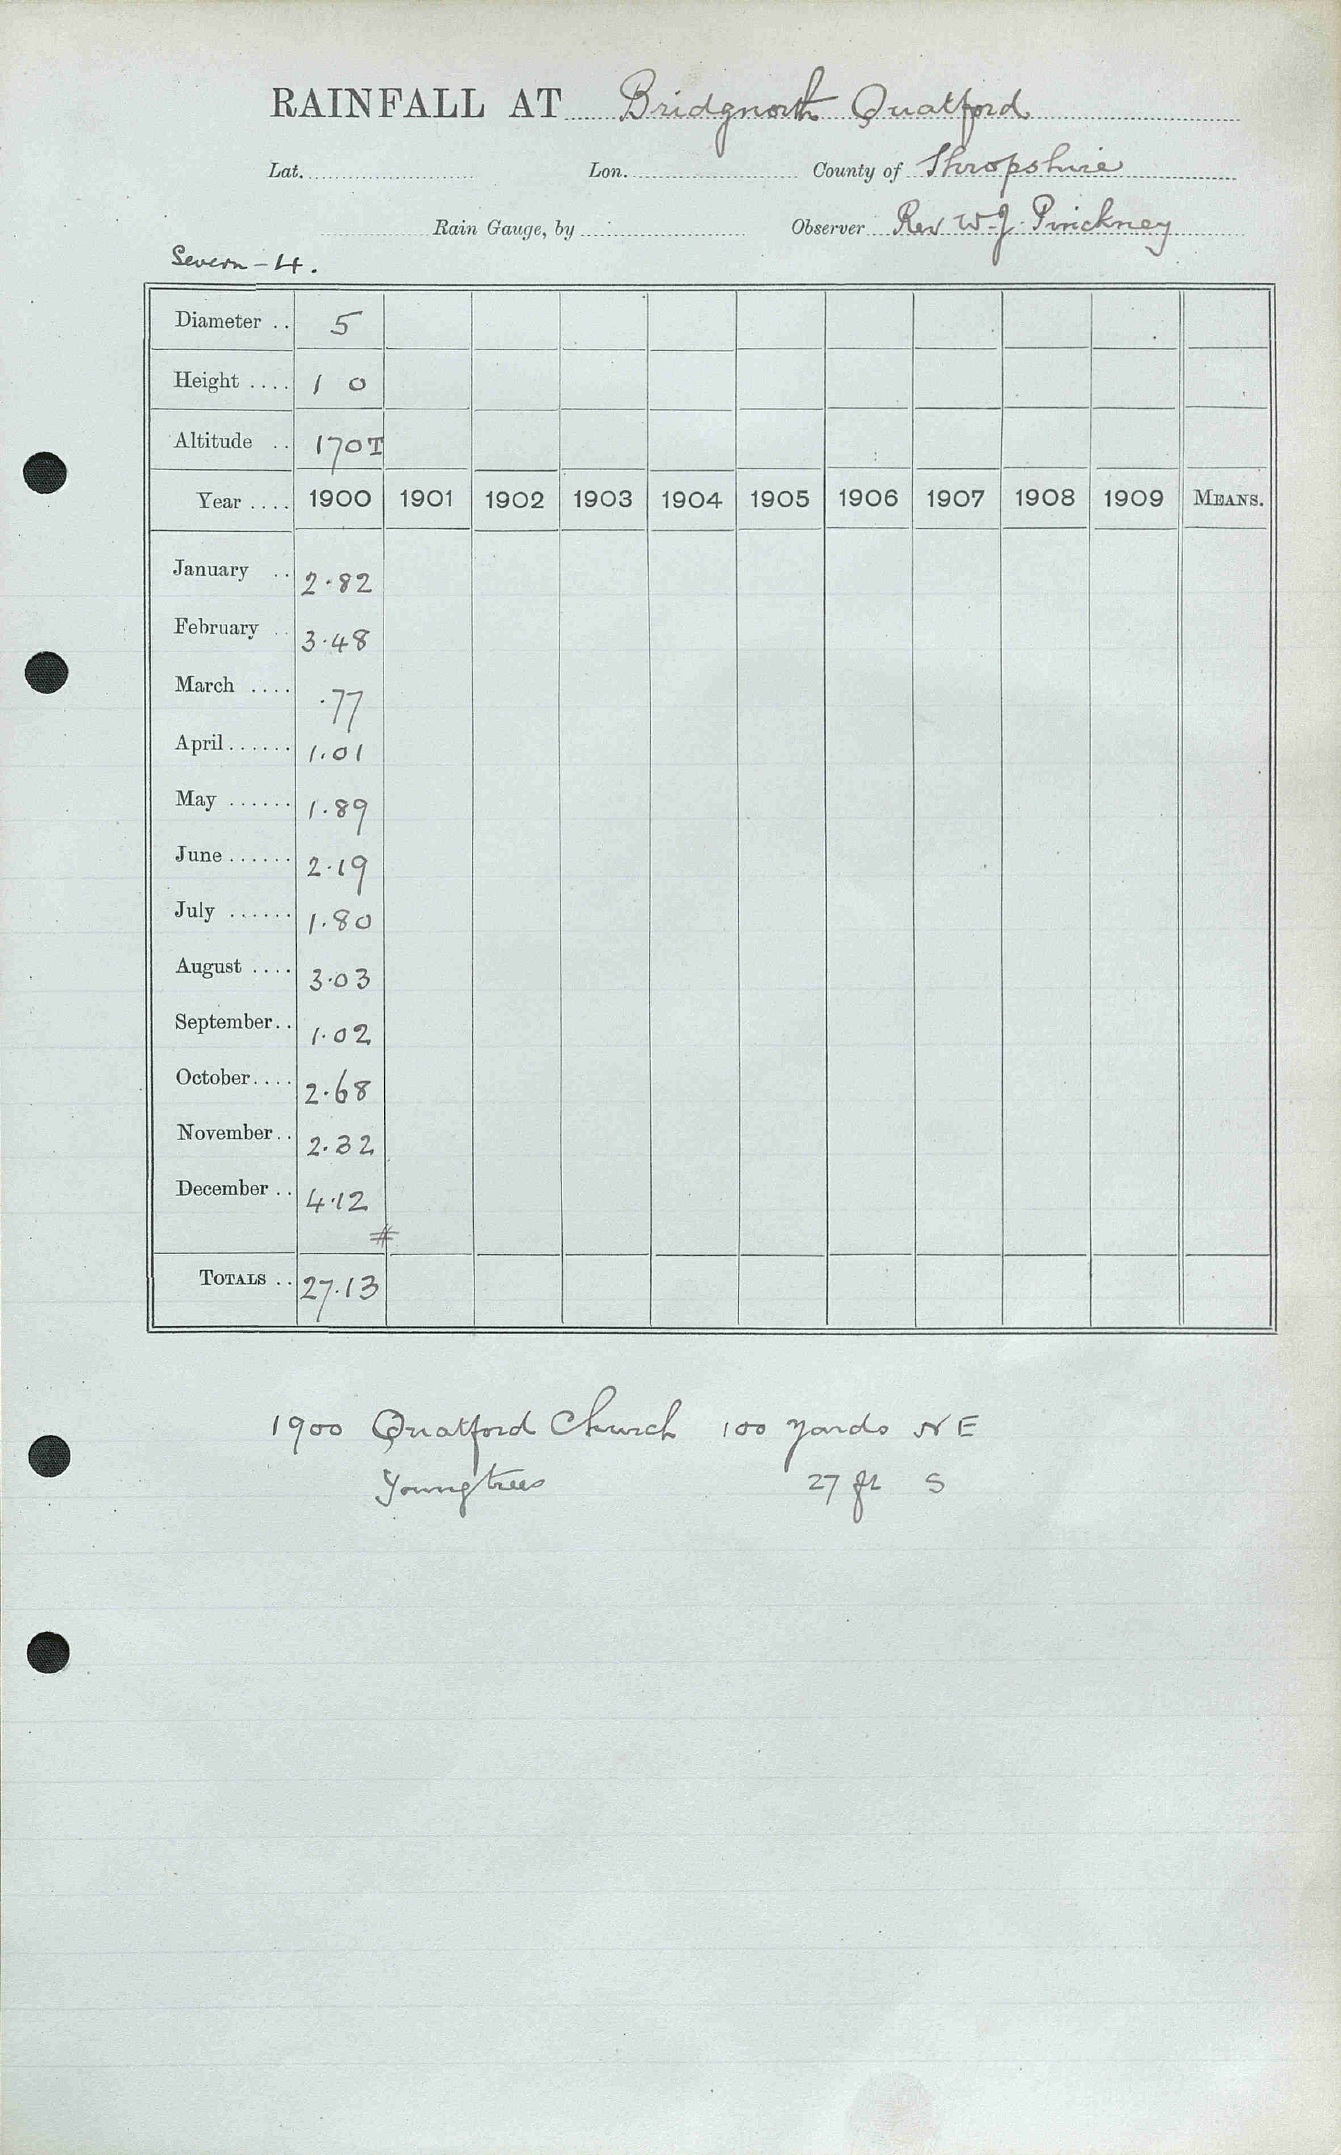 RAINFALL AT Bridgnorth Quatford
Lat. Lon. County of Shropshire
Rain Gauge, by Observer Rev W. J. Pinckney
Severn - 4.
Diameter .. 5
Height .... 1 0
Altitude .. 170T
Year .... 1900 1901 1902 1903 1904 1905 1906 1907 1908 1909 MEANS.
January .. 2.82
February .. 3.48
March .... .77
April ...... 1.01
May ...... 1.89
June ...... 2.19
July ...... 1.80
August .... 3.03
September .. 1.02
October .... 2.68
November .. 2.32
December .. 4.12
#
TOTALS .. 27.13
1900 Quatford Church 100 yards NE
Young trees 27 ft S